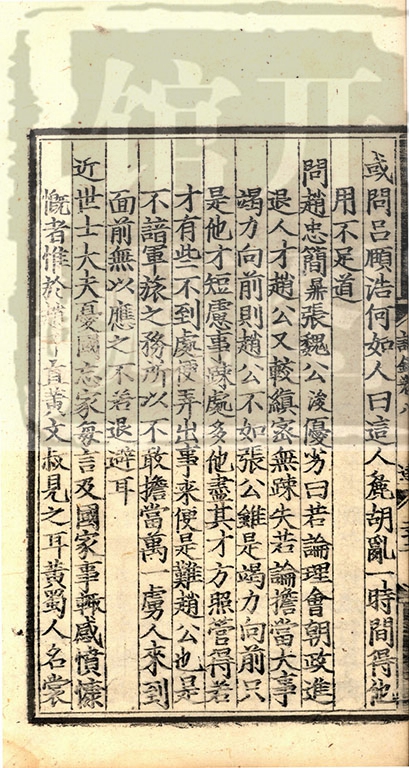 或問呂頤浩何如人曰這人麄胡亂一時間得他
用不足道
問趙忠簡鼎張魏公浚優劣曰若論理會朝政進
退人才趙公又較縝密無疎失若論擔當大事
竭力向前則趙公不如張公雖是竭力向前只
是他才短慮事疎處多他盡其才方照管得若
才有些不到處便弄出事來便是難趙公也是
不諳軍旅之務所以不敢擔當萬一虜人來到
面前無以應之不若退避耳
近世士大夫憂國忘家每言及國家事輒感憤慷
慨者惟於趙子直黃文叔見之耳黃蜀人名裳